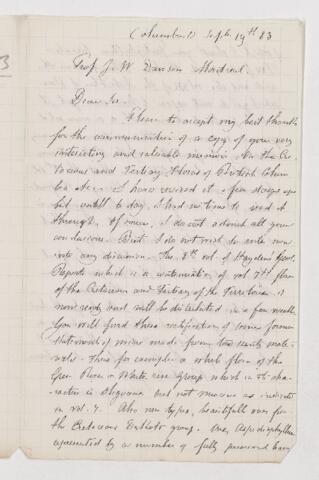 Columbus O Sept. 19th 83
Prof J. W. Dawson Montreal.
Dear Sir.
Please to accept my best thanks
for the communication of a copy of your very
interesting and valuable memoir On the Cre
taceous and Tertiary Floras of British Colum
bia &c. I have received it a few days ago
but untill to day, I had no time to read it
through. Of course, I do not admit all your
conclusions. But I do not wish to enter now
into any discussion. The 8th vol. of Haydens Geol.
Reports which is a continuation of vol 7th flora
of the Cretaceous and Tertiary of the Territories is
now ready and will be distributed in a few weeks
You will find there rectification of some former
statements of mine made from too scanty mate-
rials. There for example a whole flora of the
Green River & White river group which in its cha-
racter is Oligocene but not miocene as indicated
in vol. 7. Also new types, beautifull ones for
the Cretaceous Dakota group. One, Aspidiophyllum
represented by a number of fully preserved